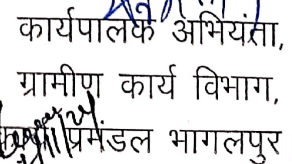 कार्यपालक अभियंता,
ग्रामीण कार्य विभाग,
प्रमंडल भागलपुर